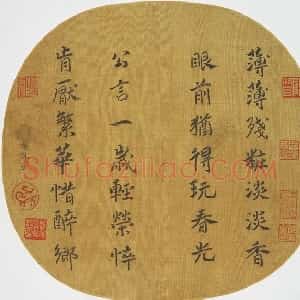 薄薄殘粧淡淡香
眼前猶得玩春光
公言一歲輕榮悴
肯厭繁華惜醉鄉
Shufaziliao.com